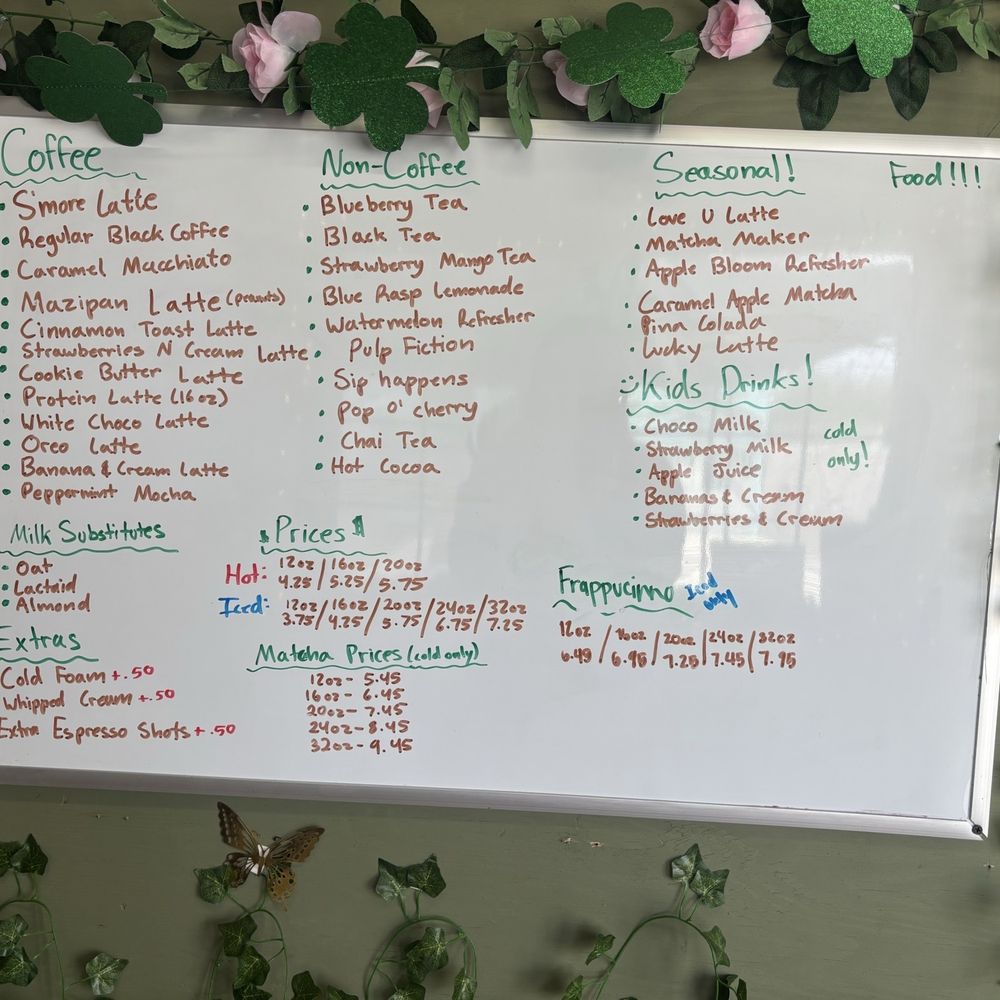 Coffee
• S'more Latte
• Regular Black Coffee
• Caramel Macchiato
• Mazipan Latte (peanuts)
• Cinnamon Toast Latte
• Strawberries N Cream Latte
• Cookie Butter Latte
• Protein Latte (16oz)
• White Choco Latte
• Oreo Latte
• Banana & Cream Latte
• Peppermint Mocha
Milk Substitutes
• Oat
• Lactaid
• Almond
Extras
Cold Foam +.50
Whipped Cream +.50
Extra Espresso Shots +.50
Non-Coffee
• Blueberry Tea
• Black Tea
• Strawberry Mango Tea
• Blue Rasp Lemonade
• Watermelon Refresher
• Pulp Fiction
• Sip happens
• Pop O' cherry
• Chai Tea
• Hot Cocoa
$Prices$
Hot: 12oz 4.25 / 16oz 5.25 / 20oz 5.75
Iced: 12oz 3.75 / 16oz 4.25 / 20oz 5.75 / 24oz 6.75 / 32oz 7.25
Matcha Prices (cold only)
12oz - 5.45
16oz - 6.45
20oz - 7.45
24oz - 8.45
32oz - 9.45
Seasonal!
• Love U Latte
• Matcha Maker
• Apple Bloom Refresher
• Caramel Apple Matcha
• Pina Colada
• Lucky Latte
Kids Drinks!
• Choco Milk
• Strawberry Milk
• Apple Juice
• Bananas & Cream
• Strawberries & Cream
cold
only!
Frappucinno Iced only
12oz / 16oz / 20oz / 24oz / 32oz
6.49 / 6.95 / 7.25 / 7.45 / 7.95
Food!!!